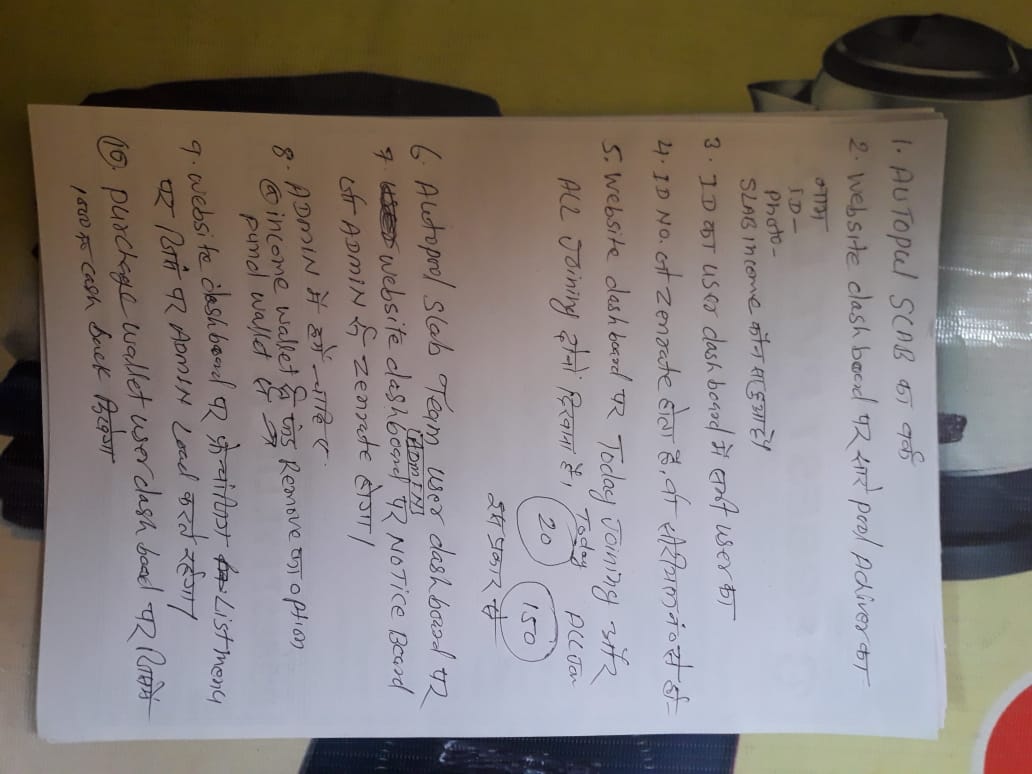 1. AUTOPUL SLAB का वर्क
2. Website dash board पर सारे pool Achiver का
नाम
ID-
Photo-
SLAB income कौन सा हुआ है।
3. ID का user dash board में सभी user का
4. ID NO. जो zenrate होता है, वो सीरीयल नं० से हो-
5. Website dashboard पर Today Joining और
ALL Joining दोनों दिखाना है।
Today
ALL Join
20
150
इस प्रकार से
6. Autopool Slab Team user dashboard पर
ADMIN
7. website dashboard पर NOTICE Board
जो ADMIN से zenrate होगा।
8. ADMIN में हमें चाहिए
@ income wallet से फंड Remove का option
Fund wallet से
9. website dashboard पर फ्रेन्चाईजि List menu
पर जिस पर ADMIN Load करते रहेगा।
10. purchage wallet user dash boad पर जिसमें
1000 रु cash back दिखेगा